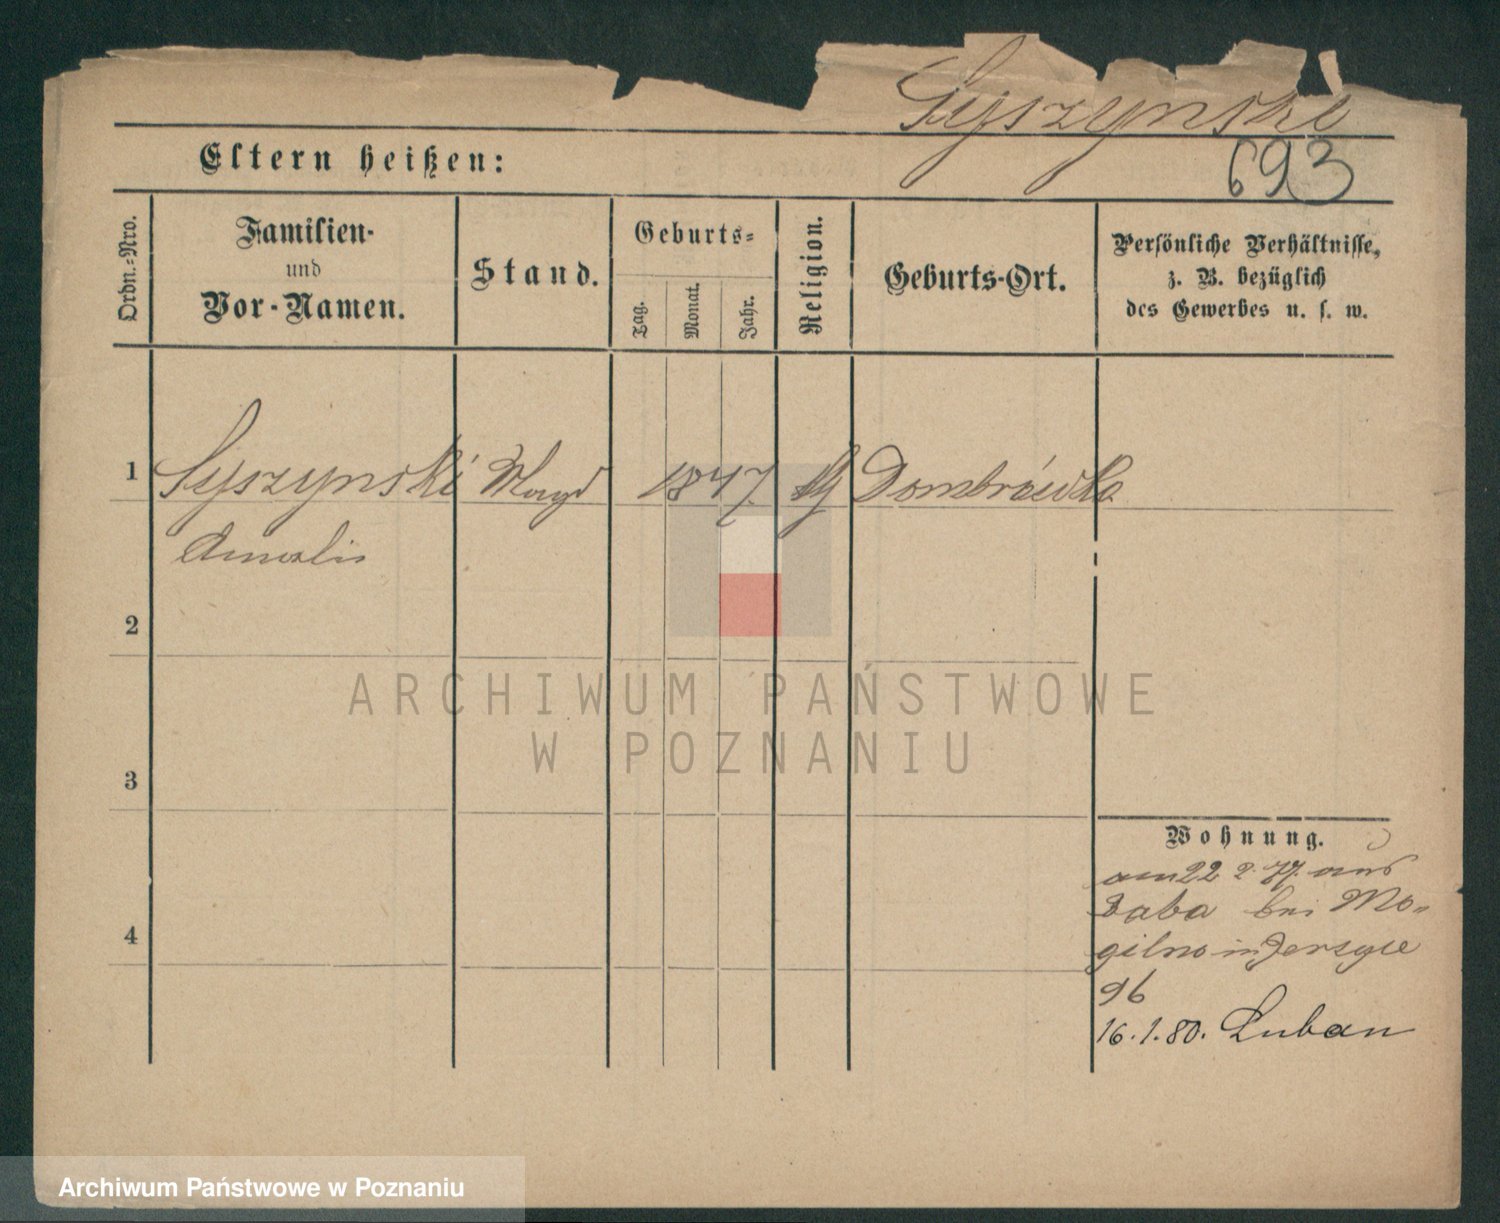 Syszynski
693
Eltern heißen:
Ordn.-Nro.
Familien-
und
Vor-Namen.
Stand.
Geburts-
Tag.
Monat.
Jahr.
Religion.
Geburts-Ort.
Persönliche Verhältnisse,
z. B. bezüglich
des Gewerbes u. s. w.
1
Syszynski Magd 1847 Dombrówka
Amalie
2
3
4
Wohnung.
am 22 2 77 aus
Daba bei Mo-
gilno in Jersyce
96
16.1.80. Luban
ARCHIWUM PAŃSTWOWE
W POZNANIU
Archiwum Państwowe w Poznaniu